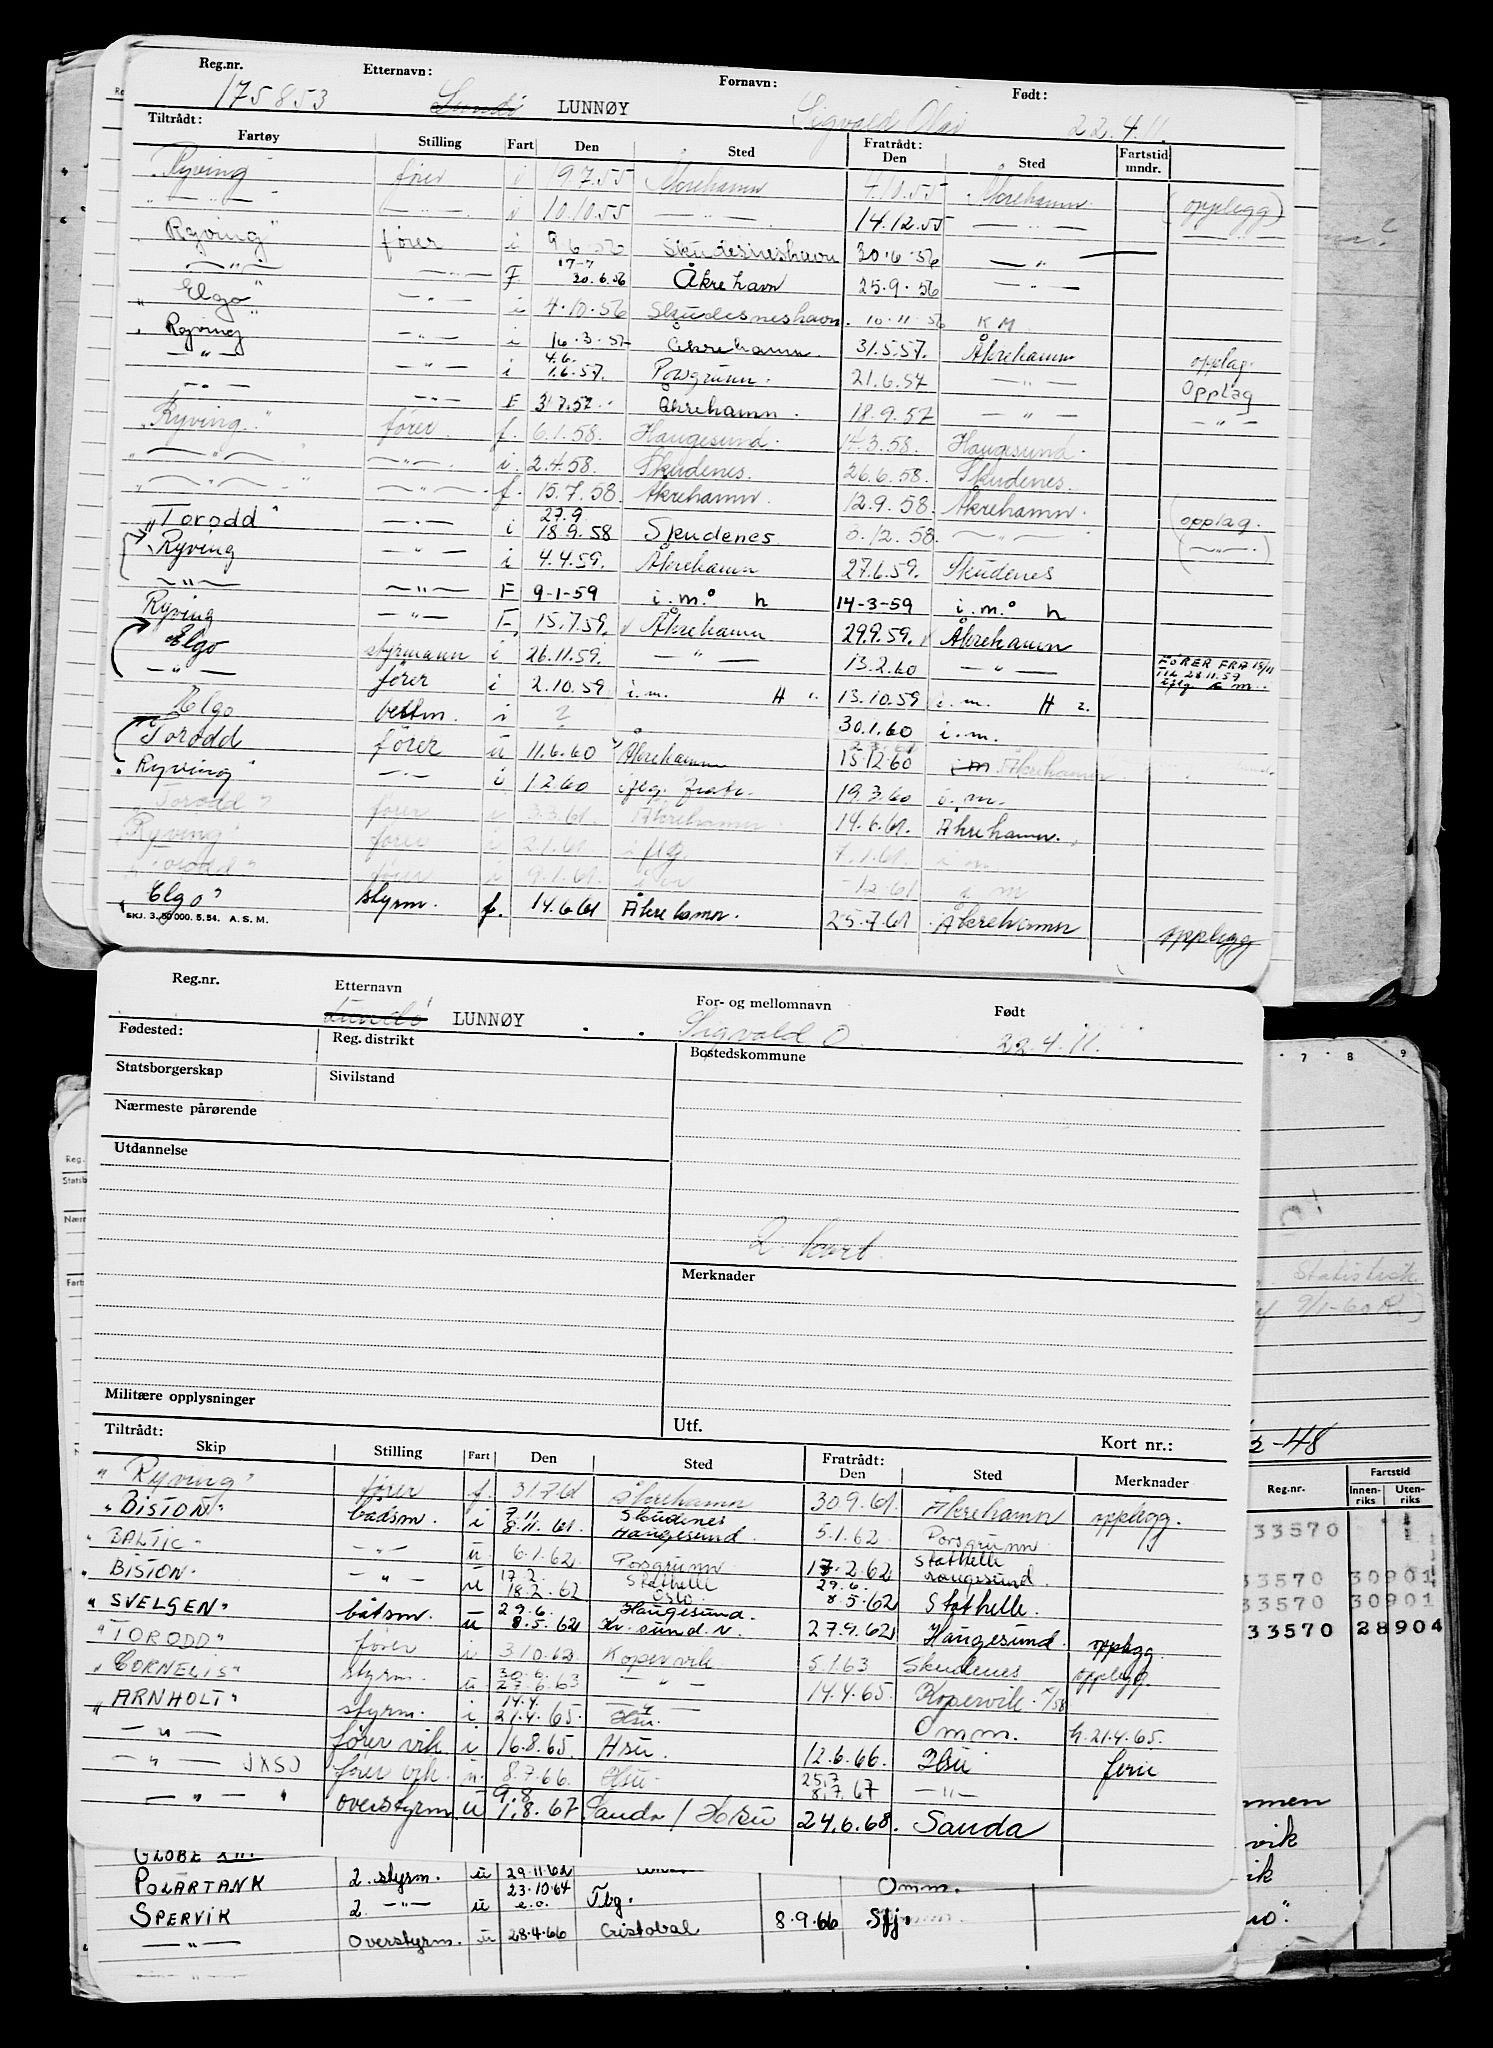 Reg.nr. Etternavn: Fornavn: Født:
175853 LUNNØY Sigvald Olai 22.4.11.
Tiltrådt: Fratrådt:
Fartøy Stilling Fart Den Sted Den Sted Fartstid mndr.
"Ryving" fører i 9.7.55 Åkrehamn 4.10.55 Åkrehamn (opplegg)
— " — — " — i 10.10.55 — " — 14.12.55 — " — — " —
"Ryving" fører i 9.6.56 Skudesneshavn 30.6.56 — " —
17-7
— " — — " — F 30.6.56 Åkrehavn 25.9.56 — " —
"Elgo" — " — i 4.10.56 Skudesneshavn. 10.11.56 K M
"Ryving — " — i 16.3.57 Åkrehamn. 31.5.57. Åkrehamn opplag.
4.6.
— " — — " — i 1.6.57. Porsgrunn. 21.6.57 — " — Opplag
— " — — " — F 3.7.57. Åkrehamn. 18.9.57 — " — — " —
"Ryving." fører. f. 6.1.58. Haugesund. 14.3.58. Haugesund.
— " — — " — i. 2.4.58. Skudenes. 26.6.58. Skudenes.
— " — — " — f. 15.7.58. Åkrehamn. 12.9.58. Åkrehamn. (opplag.
27.9
"Torodd" — " — i 18.9.58 Skudenes .12.58. — " — (— " —)
Ryving — " — i 4.4.59. Åkrehamn 27.6.59. Skudenes
— " — — " — F 9-1-59 i.m.° h 14-3-59 i.m.° h
Ryving — " — F, 15.7.59. Åkrehamn 29.9.59. Åkrehamn
Elgo styrmann i 26.11.59. — " — 13.2.60 — " — FØRER FRA 15/11 TIL 28.11.59
— " — fører i 2.10.59 i.m. H 13.10.59 i.m. H 2.
Elgo bestm. i ? 30.1.60 i.m.
Torodd fører u 11.6.60 Åkrehamn 15.12.60 i m Åkrehamn
"Ryving" — " — i 1.2.60 iflg. fratr. 19.3.60 i.m.
"Torodd" fører 3.3.61. Åkrehamn. 14.6.61. Åkrehamn.
"Ryving" fører 2.1.61. iflg 7.1.61 i m
"Torodd" fører i 9.1.61. 12.61
"Elgo" styrm. f. 14.6.61 Åkrehamn. 25.7.61 Åkrehamn opplegg
SKJ. 3. 50 000. 5.54. A.S.M.
Reg.nr. Etternavn For- og mellomnavn Født
LUNNØY Sigvald O. 22.4.11.
Fødested: Reg. distrikt Bostedskommune
Statsborgerskap Sivilstand
Nærmeste pårørende
Utdannelse
2. kort.
Merknader
Militære opplysninger Utf. Kort nr.:
Tiltrådt: Fratrådt:
Skip Stilling Fart Den Sted Den Sted Merknader
"Ryving" fører f. 31.7.61 Åkrehamn 30.9.61. Åkrehamn opplegg.
7.11 Skudenes
"BISTON" båtsm. i 8.11.61. Haugesund. 5.1.62. Porsgrunn.
"BALTIC" — " — u 6.1.62. Porsgrunn 17.2.62 Stathelle
17.2. Stathelle 29.6. Haugesund.
"BISTON. — " — u 18.2.62 Oslo. 8.5.62 Stathelle.
29.6. Haugesund.
"SVELGEN" båtsm. u 8.5.62 Kr. sund. N. 27.9.62 Haugesund. opplegg.
"TORODD" fører i 3.10.62. Kopervik 5.1.63 Skudenes opplegg.
30.6.
"CORNELIS" styrm. u 27.6.63 — " — 14.4.65. Kopervik.
14.4.
"ARNHOLT" styrm. i 21.4.65. Hsu. Omm. h. 21.4.65.
— " — fører vik. i 16.8.65. Hsu. 12.6.66. Hsu ferie
25.7
— " — JXSJ fører vik. u. 8.7.66. Hsu. 8.7.67 — " —
9.8
— " — overstyrm. u 1.8.67. Sauda / Hsu 24.6.68. Sauda
GLOBE 29.11.62
POLARTANK 2. styrm. u 23.10.64 Omm.
SPERVIK 2. — " — u e.o. Tbg. 8.9.66 Sfj.
— " — Overstyrm. u 28.4.66 Cristobal
7 8 9
Reg.
Statistikk
9/1-60
-48
Reg.nr. Fartstid
Innenriks Utenriks
33570
33570 30901
33570 30901
33570 28904